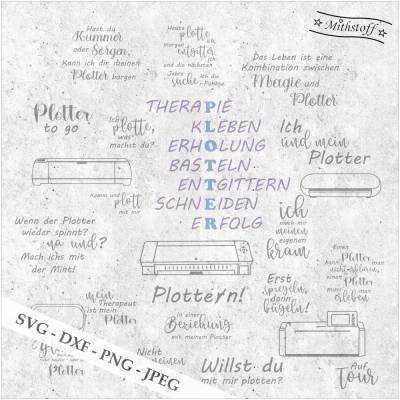 Hast du
Kummer
oder Sorgen,
Kann ich dir meinen
Plotter borgen
Heute
plotte
ich
morgen
entgitter
ich
und die nächsten
Jahre
suche ich die
Mithstoff
Das Leben ist eine
Kombination zwischen
Magie und
Plotter
Plotter
to go
Ich
plotte,
was
machst du?
THERAPIE
KLEBEN
ERHOLUNG
BASTELN
ENTGITTERN
SCHNEIDEN
ERFOLG
Ich
und mein
Plotter
Komm und
plott
mit mir
ich
mach mir
meinen
eigenen
kram
Wenn der Plotter
wieder spinnt?
na und?
Mach ichs mit
der Mint!
Einen
Plotter
kann man
nicht erklären,
einen
Plotter
muss man
erleben
Plottern!
Erst
spiegeln,
dann
bügeln!
mein
Therapeut
ist mein
Plotter
in einer
Beziehung
mit meinem Plotter
Nicht
meinen
Plotter
Willst du
mit mir plotten?
Auf
Tour
SVG - DXF - PNG - JPEG